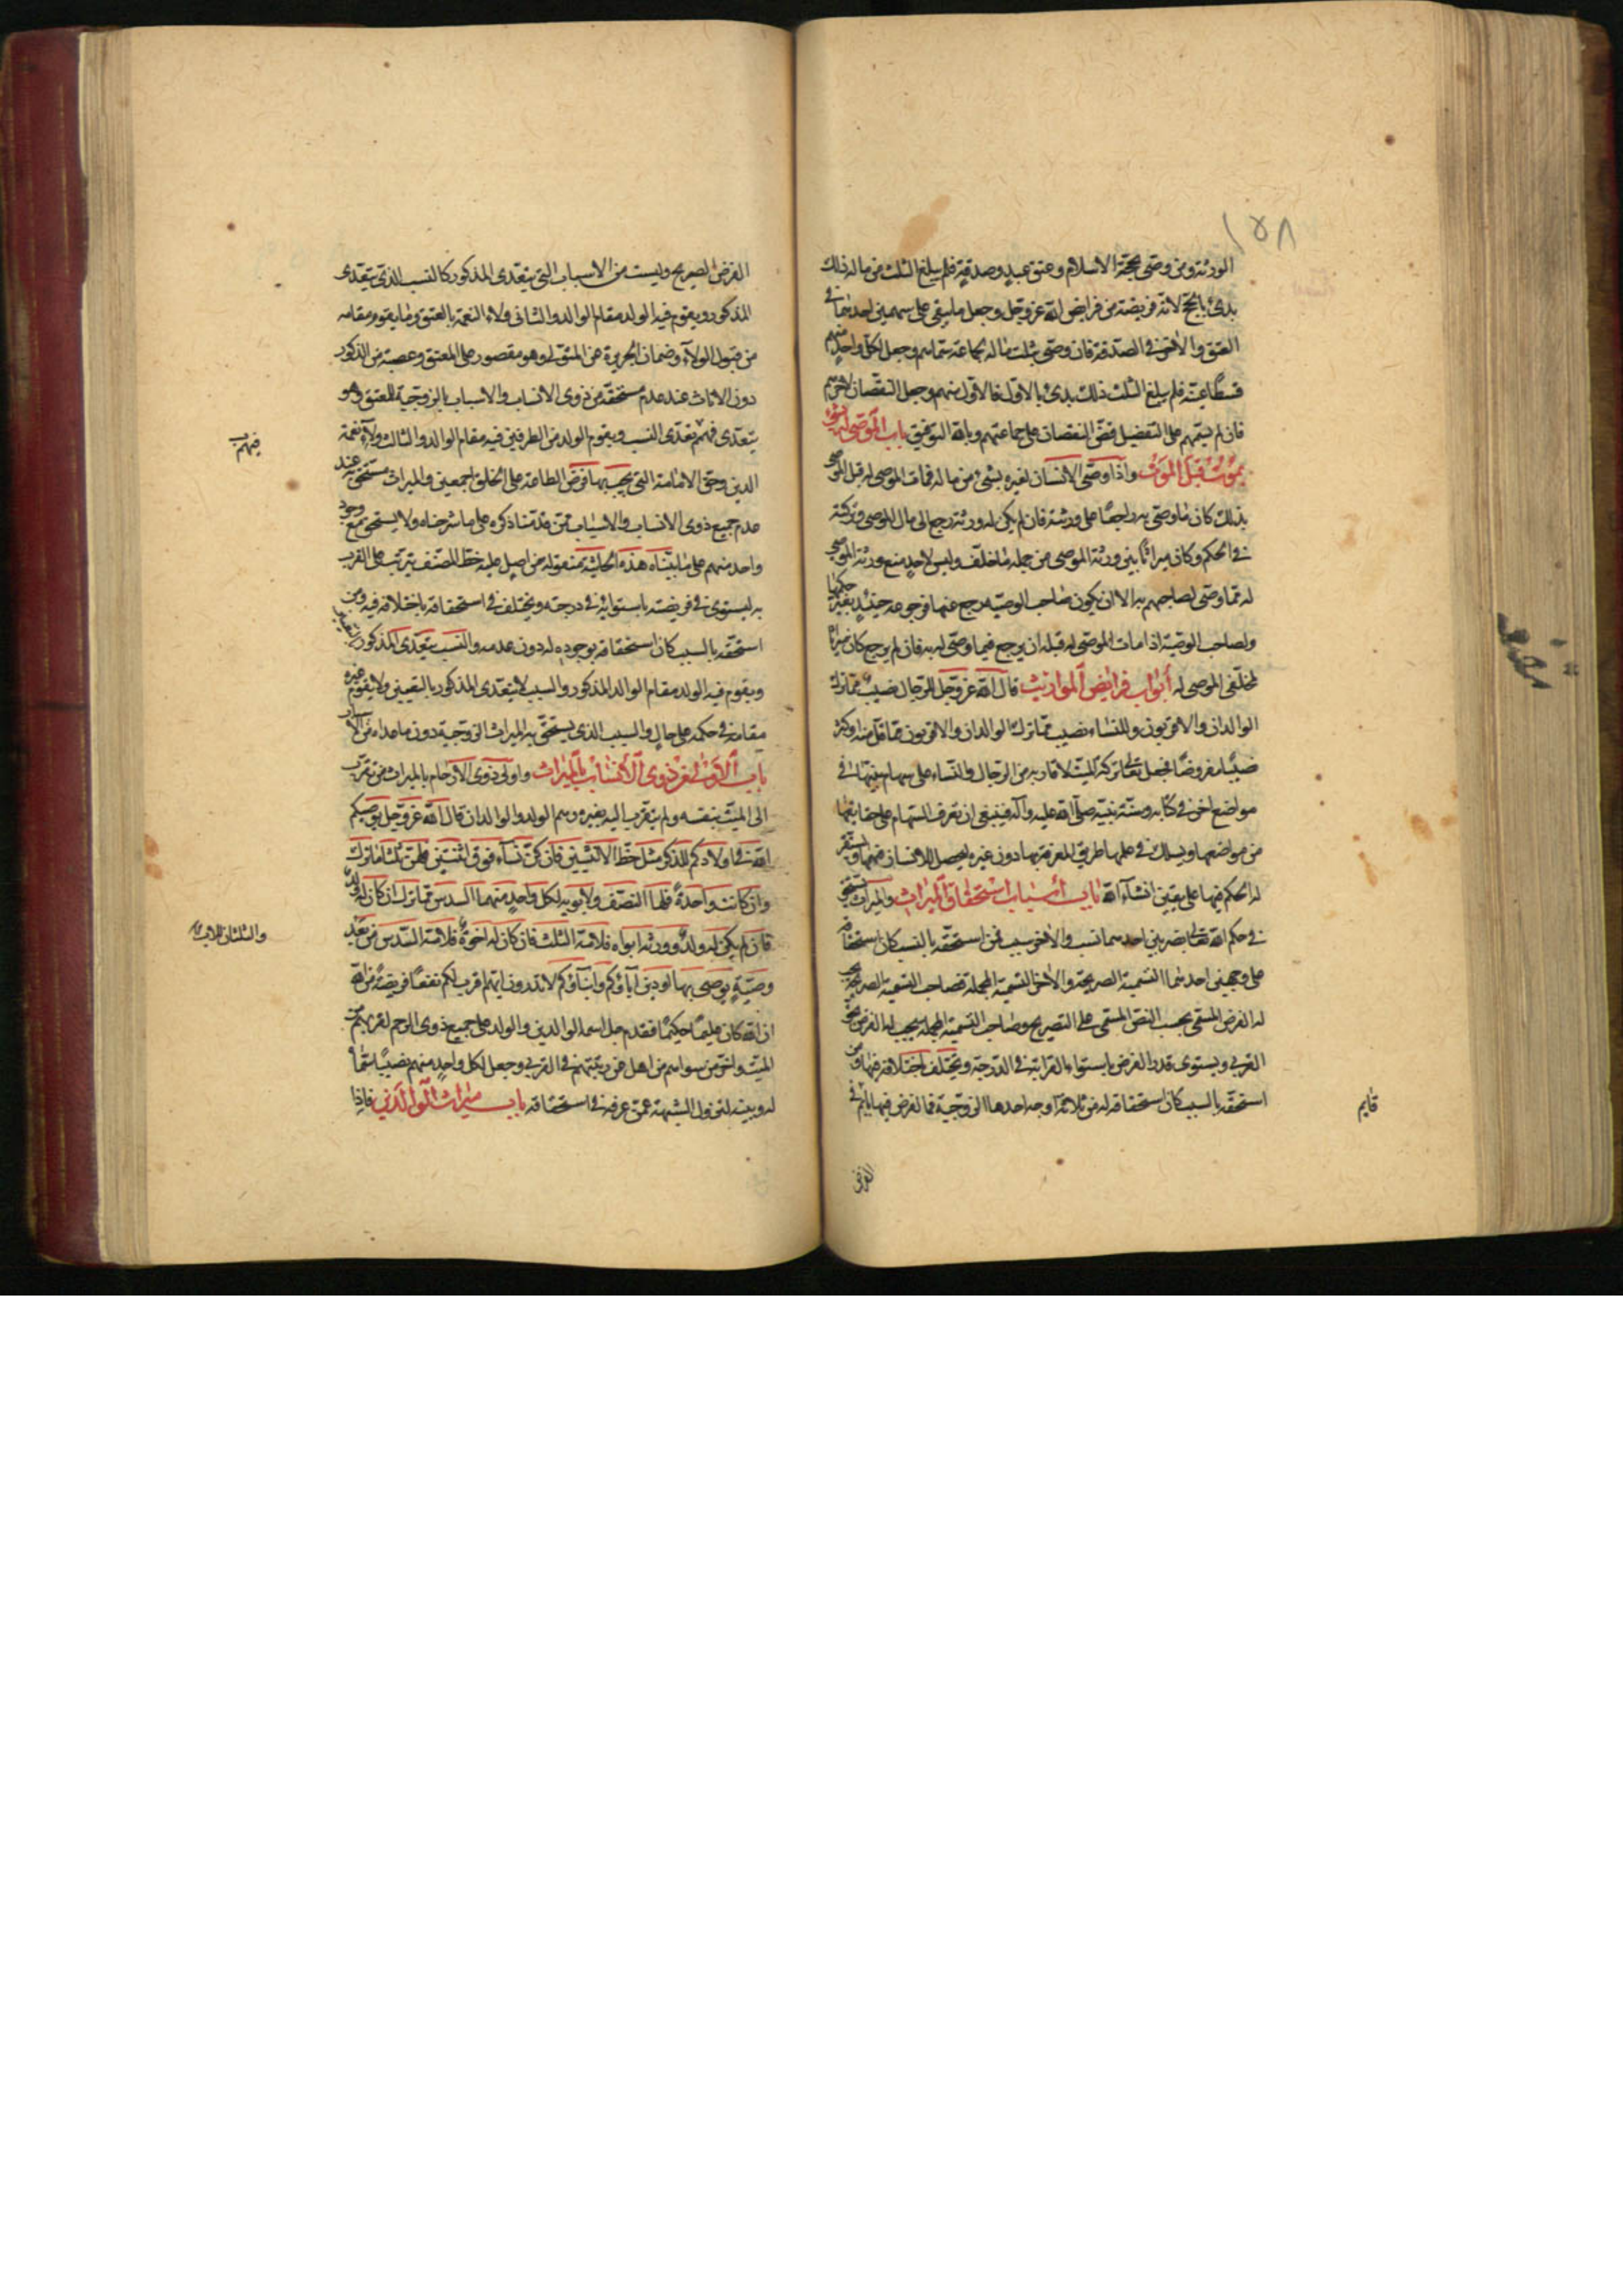 ١٥٨
الورثة ومن وصى بحجة الاسلام وعتق عبد وصدقة فلم يبلغ الثلث من ماله ذلك
بدئ بالحج لانه فريضة من فرايض الله عز وجل وجعل ما يبقى على سهمين احدهما في
العتق والاخر في الصدقة فان وصى بثلث ماله لجماعة سماهم وجعل لكل واحد منهم
قسطا عينه فلم يبلغ الثلث ذلك بدئ بالاول فالاول منهم وجعل النقصان لاخرهم
فان لم يسمهم على التفضيل قض النقصان على جماعتهم وبالله التوفيق باب الموصى له بشئ
يموت قبل الموت واذا وصى الانسان لغيره بشئ من ماله فمات الموصى له قبل الموصى
بذلك كان ما وصى به راجعا على ورثته فان لم يكن له ورثة رجع الى مال الموصى وتركته
في الحكم وكان ميراثا بين ورثة الموصى من جملة ما خلف وليس لاحد منع ورثة الموصى
له مما وصى لصاحبهم به الا ان يكون صاحب الوصية رجع عنها فرجوعه حينئذ يغير حكمها
ولصاحب الوصية اذا مات الموصى له قبله ان يرجع فيما وصى له به فان لم يرجع كان ميراثا
لمخلفي الموصى له ابواب فرايض المواريث قال الله عز وجل للرجال نصيب مما ترك
الوالدان والاقربون وللنساء نصيب مما ترك الوالدان والاقربون مما قل منه او كثر
نصيبا مفروضا فجعل تعالى تركة الميت لاقاربه من الرجال والنساء على سهام بينها في
مواضع اخر في كتابه وسنة نبيه صلى الله عليه وآله فينبغي ان تعرف السهام على حقايقها
من مواضعها ويسلك في علمها طريق المعرفة بها دون غيره ليحصل للانسان فهمها ويستقر
له الحكم فيها على يقين انشاء الله باب اسباب استحقاق الميراث والميراث يستحق
في حكم الله تعالى بضربين احدهما نسب والاخر سبب فمن استحقه بالنسب كان استحقاقه
على وجهين احدهما التسمية الصريحة والاخر التسمية المجملة فصاحب التسمية الصريحة يجب
له الفرض المسمى بحسب النص المسمى على التصريح وصاحب التسمية المجملة يجب له الفرض بحق
القربى ويستوى قدر الفرض باستواء القرابة في الدرجة ويختلف باختلافه فيها ومن
استحقه بالسبب كان استحقاقه له من ثلاثة اوجه احدها الزوجية فالفرض فيها قايم في
قايم
الفرض
الفرض الصريح وليست من الاسباب التي يتعدى المذكور كالنسب الذي يتعدى
المذكور ويقوم فيه الولد مقام الوالد والثاني ولاء النعمة بالعتق وما يقوم مقامه
من قبول الولاء وضمان الجريرة عن المتولى وهو مقصور على المعتق وعصبته من الذكور
دون الاناث عند عدم مستحقه من ذوى الانساب والاسباب بالزوجية للمعتق وهو
يتعدى فيهم تعدى النسب ويقوم الولد من الطرفين فيه مقام الوالد والثالث ولاء نعمة
فيهم
الدين وحق الامامة التي يجب بها فرض الطاعة على الخلق اجمعين والميراث مستحق به عند
عدم جميع ذوى الانساب والاسباب ممن قدمنا ذكره على ما شرحناه ولا يستحق مع وجود
واحد منهم على ما بيناه هذه الحاشية منقولة من اصل عليه خط المصنف يترتب على القرب
به ليستوى في فريضته باستوائه في درجته ويختلف في استحقاقه باختلافه فيه ومن
استحقه بالسبب كان استحقاقه بوجوده له دون عدمه والنسب يتعدى المذكور
ويقوم فيه الولد مقام الوالد المذكور والسبب لا يتعدى المذكور باليقين ولا يقوم غيره
مقامه في حكمه على حال والسبب الذي يستحق به الميراث الزوجية دون ما عداه من الاسباب
باب الاولى من ذوى الانساب بالميراث واولى ذوى الارحام بالميراث من تقرب
الى الميت بنفسه ولم يتقرب اليه بغيره وهم الولد والوالدان قال الله عز وجل يوصيكم
الله في اولادكم للذكر مثل حظ الانثيين فان كن نساء فوق اثنتين فلهن ثلثا ما ترك
وان كانت واحدة فلها النصف ولابويه لكل واحد منهما السدس مما ترك ان كان له ولد
فان لم يكن له ولد وورثه ابواه فلامه الثلث فان كان له اخوة فلامه السدس من بعد
والثلثان للاب
وصية يوصى بها او دين آباؤكم وابناؤكم لا تدرون ايهم اقرب لكم نفعا فريضة من الله
ان الله كان عليما حكيما فقدم جل اسمه الوالدين والولد على جميع ذوى الرحم لقربهم من
الميت واخر من سواهم من اهل عن رتبتهم في القربى وجعل لكل واحد منهم نصيبا سماه
له وبينه لتزول الشبهة عمن عرفه في استحقاقه باب ميراث الوالدين فاذا